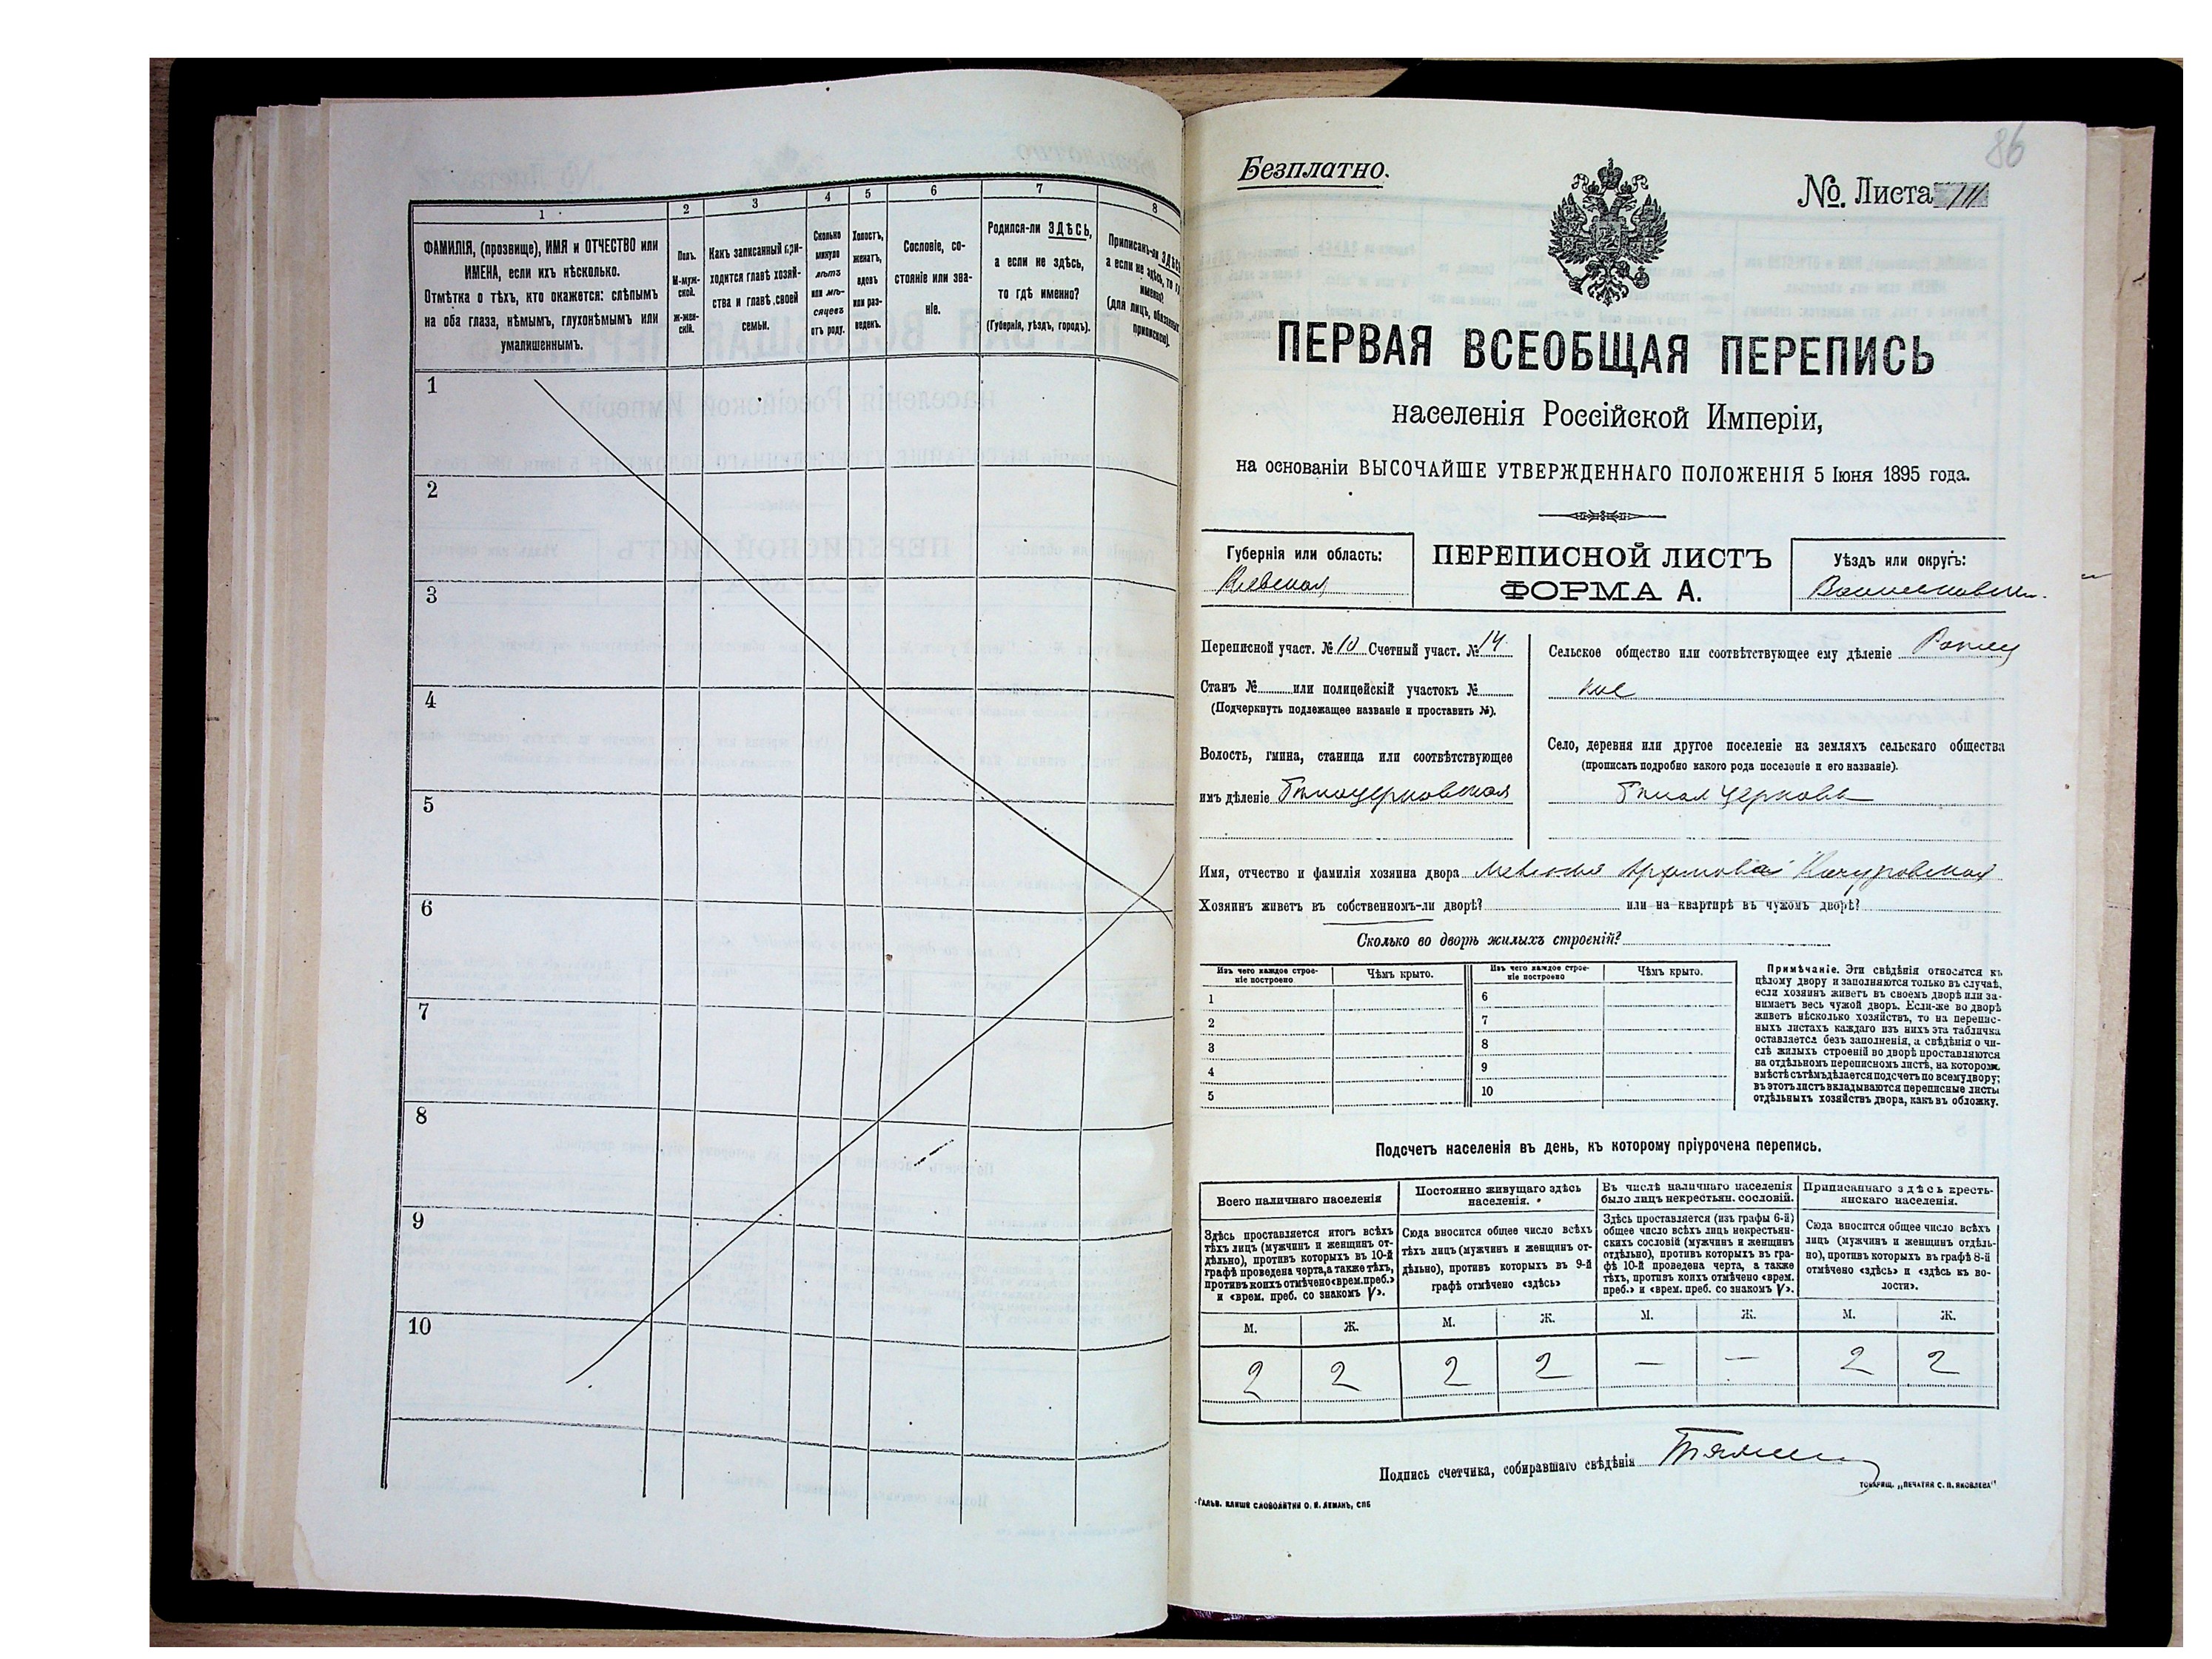 1
2
3
4
5
6
7
8
ФАМИЛІЯ, (прозвище), ИМЯ и ОТЧЕСТВО или
ИМЕНА, если ихъ нѣсколько.
Отмѣтка о тѣхъ, кто окажется: слѣпымъ
на оба глаза, нѣмымъ, глухонѣмымъ или
умалишеннымъ.
Полъ.
М-муж-
ской.
Ж-жен-
скій.
Какъ записанный при-
ходится главѣ хозяй-
ства и главѣ своей
семьи.
Сколько
минуло
лѣтъ
или мѣ-
сяцевъ
отъ роду.
Холостъ,
женатъ,
вдовъ
или раз-
веденъ.
Сословіе, со-
стояніе или зва-
ніе.
Родился-ли ЗДѢСЬ,
а если не здѣсь,
то гдѣ именно?
(Губернія, уѣздъ, городъ).
Приписанъ-ли ЗДѢСЬ,
а если не здѣсь, то гдѣ
именно?
(для лицъ, обязанныхъ
припискою).
1
2
3
4
5
6
7
8
9
10
86
Безплатно.
№ Листа 111
ПЕРВАЯ ВСЕОБЩАЯ ПЕРЕПИСЬ
населенія Россійской Имперіи,
на основаніи ВЫСОЧАЙШЕ УТВЕРЖДЕННАГО ПОЛОЖЕНІЯ 5 Іюня 1895 года.
Губернія или область:
Кіевская
ПЕРЕПИСНОЙ ЛИСТЪ
ФОРМА А.
Уѣздъ или округъ:
Переписной участ. № 10 Счетный участ. № 14
Станъ № или полицейскій участокъ №
(Подчеркнуть подлежащее названіе и проставить №).
Волость, гмина, станица или соотвѣтствующее
имъ дѣленіе Бѣлоцерковская
Сельское общество или соотвѣтствующее ему дѣленіе
Село, деревня или другое поселеніе на земляхъ сельскаго общества
(прописать подробно какого рода поселеніе и его названіе).
Бѣлая Церковь
Имя, отчество и фамилія хозяина двора
Хозяинъ живетъ въ собственномъ-ли дворѣ? или на квартирѣ въ чужомъ дворѣ?
Сколько во дворѣ жилыхъ строеній?
Изъ чего каждое строе-
ніе построено
Чѣмъ крыто.
Изъ чего каждое строе-
ніе построено
Чѣмъ крыто.
1
2
3
4
5
6
7
8
9
10
Примѣчаніе. Эти свѣдѣнія относятся къ
цѣлому двору и заполняются только въ случаѣ,
если хозяинъ живетъ въ своемъ дворѣ или за-
нимаетъ весь чужой дворъ. Если-же во дворѣ
живетъ нѣсколько хозяйствъ, то на перепис-
ныхъ листахъ каждаго изъ нихъ эта табличка
оставляется безъ заполненія, а свѣдѣнія о чи-
слѣ жилыхъ строеній во дворѣ проставляются
на отдѣльномъ переписномъ листѣ, на которомъ
вмѣстѣ съ тѣмъ дѣлается подсчетъ по всему двору;
въ этотъ листъ вкладываются переписные листы
отдѣльныхъ хозяйствъ двора, какъ въ обложку.
Подсчетъ населенія въ день, къ которому пріурочена перепись.
Всего наличнаго населенія
Здѣсь проставляется итогъ всѣхъ
тѣхъ лицъ (мужчинъ и женщинъ от-
дѣльно), противъ которыхъ въ 10-й
графѣ проведена черта, а также тѣхъ,
противъ коихъ отмѣчено «врем. преб.»
и «врем. преб. со знакомъ V».
Постоянно живущаго здѣсь
населенія.
Сюда вносится общее число всѣхъ
тѣхъ лицъ (мужчинъ и женщинъ от-
дѣльно), противъ которыхъ въ 9-й
графѣ отмѣчено «здѣсь»
Въ числѣ наличнаго населенія
было лицъ некрестьян. сословій.
Здѣсь проставляется (изъ графы 6-й)
общее число всѣхъ лицъ некрестьян-
скихъ сословій (мужчинъ и женщинъ
отдѣльно), противъ которыхъ въ гра-
фѣ 10-й проведена черта, а также
тѣхъ, противъ коихъ отмѣчено «врем.
преб.» и «врем. преб. со знакомъ V».
Приписаннаго здѣсь кресть-
янскаго населенія.
Сюда вносится общее число всѣхъ
лицъ (мужчинъ и женщинъ отдѣль-
но), противъ которыхъ въ графѣ 8-й
отмѣчено «здѣсь» и «здѣсь къ во-
лости».
М. Ж. М. Ж. М. Ж. М. Ж.
2 2 2 2 — — 2 2
Подпись счетчика, собиравшаго свѣдѣнія
ГАЛЬВ. КЛИШЕ СЛОВОЛИТНИ О. И. ЛЕМАНЪ, СПБ
ТОВАРИЩ. „ПЕЧАТНЯ С. П. ЯКОВЛЕВА"